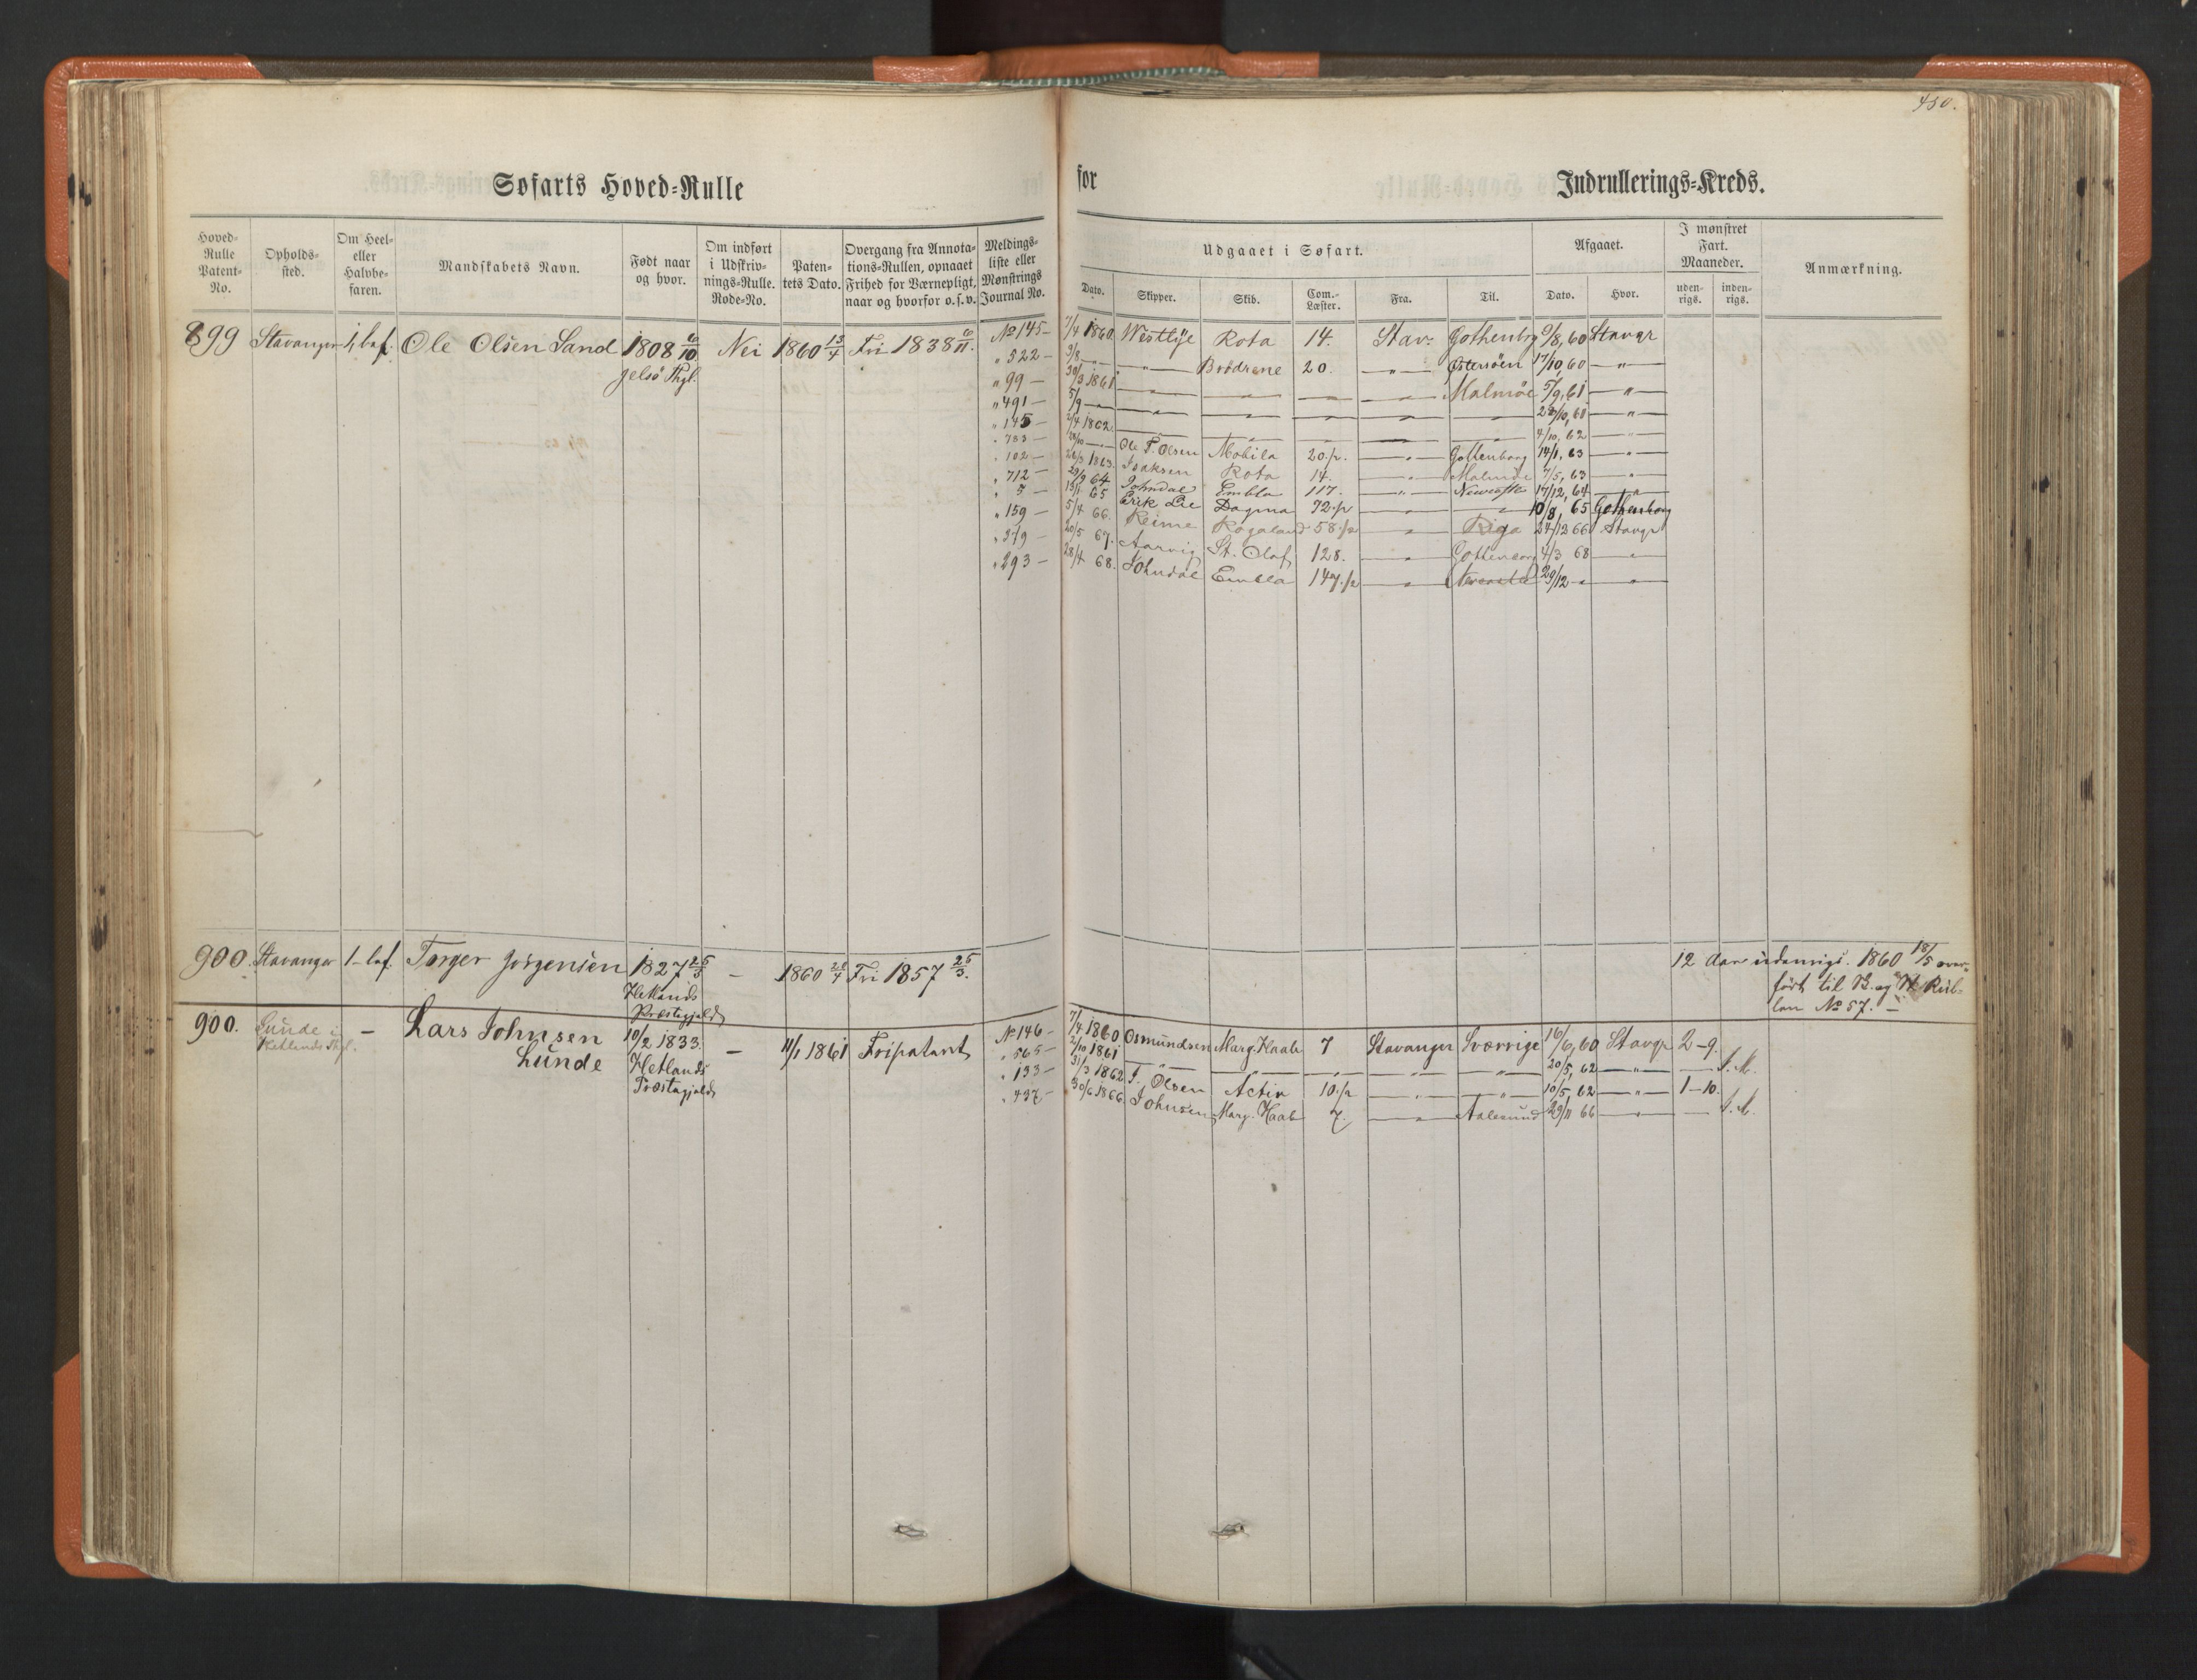 450.
Søfarts Hoved=Rulle for Indrullerings=Kreds.
Hoved= Rulle Patent= No.
Opholds= sted.
Om Heel= eller Halvbe= faren.
Mandskabets Navn.
Født naar og hvor.
Om indført i Udskriv= nings=Rulle. Rode=No.
Paten= tets Dato.
Overgang fra Annota= tions=Rullen, opnaaet Frihed for Værnepligt, naar og hvorfor o. s. v.
Meldings= liste eller Mønstrings Journal No.
Udgaaet i Søfart.
Dato. Skipper. Skib. Com.= Læster. Fra. Til.
Afgaaet.
Dato. Hvor.
I mønstret Fart. Maaneder.
uden= rigs. inden= rigs.
Anmærkning.
899 Stavanger 1/1 baf. Ole Olsen Sand 1808 6/10 Nei 1860 13/4 Fri 1838 6/11. No 145 - 7/4 1860 Westlye Rota 14. Stav: Gothenbg 9/8, 60 Stavgr
Jelsö Pgl.
" 522 - 3/8 - " - - " - Brödrene 20. - " - Østersöen 17/10, 60 - " -
" 99 - 30/3 1861 - " - - " - - - " - Malmöe 5/9, 61 - " -
" 491 - 5/9 - " - - " - - " - - " - - " - - " - 28/10, 61 - " -
" 145 - 2/4 1862. - " - - " - - " - - " - - " - 4/10, 62 - " -
" 783 - 28/10 - " - Ole T. Olsen Mobila 20.p. - " - Gottenborg 14/1, 63 - " -
" 102 - 26/3 1863. Isaksen Rota 14. - " - Malmöe 7/5, 63 - " -
" 712 - 29/9 64 Johndal Embla 117. - " - Newcastle 17/12, 64 - " -
" 5 - 13/1 65 Erik Lie Dagma 72.p - " - - " - 10/8, 65 Gothenborg
" 159 - 5/4 66. Reime Rogaland 58.p - " - Riga 24/12 66 Stavgr
" 379 - 20/5 67. Aarvig St. Olaf 128. - " - Gottenborg 4/3 68 - " -
" 293 - 28/4 68. Johndal Embla 147.p - " - 29/12 - " - - " -
900. Stavanger 1 - baf. Torger Jörgensen 1827 25/3 - 1860 20/4 Fri 1857 25/3. 12 Aar udenrigs. 1860 18/5 over=
Hetlands Præstegjeld
ført til B. og H Rul=
len No 57. -
900. Lunde i Hetlands Pgl. - Lars Johnsen 10/2 1833. - 11/1 1861 Fripatent No 146 - 7/4 1860 Osmundsen Marg. Haab 7 Stavanger Sverrige 16/6, 60 Stavgr 2-9.
Lunde Hetlands Præstegjeld
" 565 - 2/10 1861 - " - - " - - " - - " - - " - 20/5, 62 - " - - J. M.
" 133 - 31/3 1862 T. Olsen Activ 10.p - " - - " - 10/5, 62 - " - 1-10.
" 437 - 30/6 1866. Johnsen Marg. Haab 7. - " - Aalesund 29/11 66 - " - - J. M.